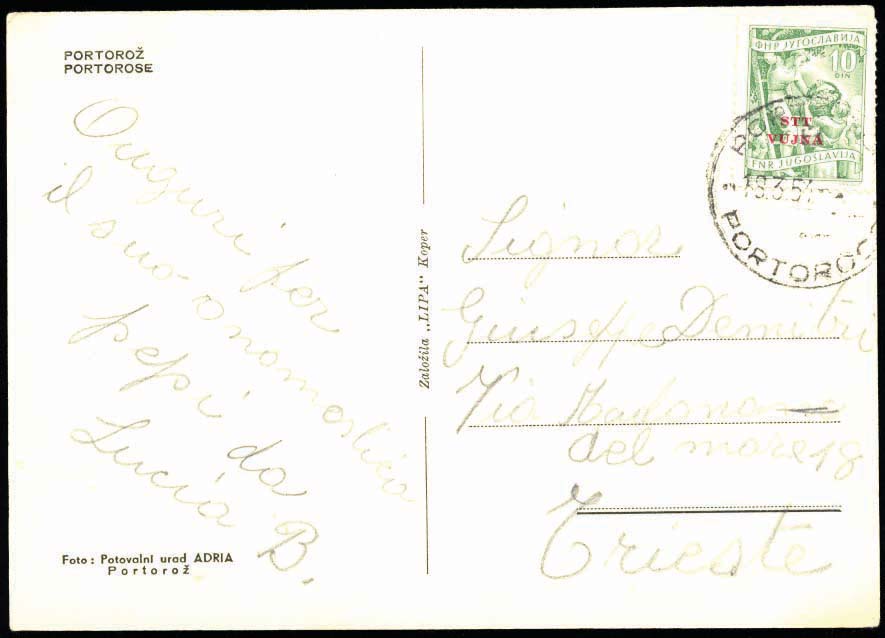 PORTOROŽ
PORTOROSE
Auguri per
il suo onomastico
pepi da
Lucia B.
Foto: Potovalni urad ADRIA
Portorož
Založila „LIPA“ Koper
ФНР ЈУГОСЛАВИЈА
10
DIN
STT
VUJNA
FNR JUGOSLAVIJA
18.3.54
PORTOROSE
Signor
Giuseppe Demitri
Via Madonna
del mare 18
Trieste